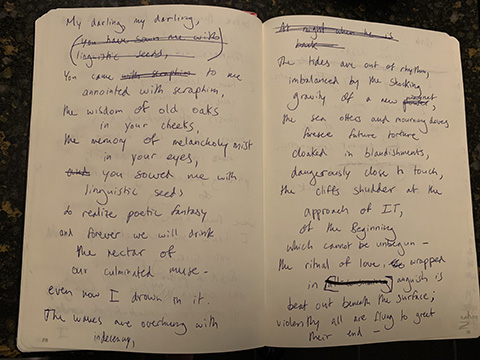 My darling, my darling,
you have sown me with
linguistic seeds,
You came with seraphim to me
annointed with seraphim,
the wisdom of old oaks
in your cheeks,
the memory of melancholy mist
in your eyes,
and you sowed me with
linguistic seeds
to realize poetic fantasy
and forever we will drink
the nectar of
our culminated muse -
even now I drown in it.
The waves are overhung with
indecency,
At night when he is
back
The tides are out of rhythm,
imbalanced by the shocking
gravity of a new planet,
the sea otters and mourning doves
foresee future torture
cloaked in blandishments,
dangerously close to touch,
the cliffs shudder at the
approach of IT,
of the Beginning
which cannot be unbegun -
the ritual of love, wrapped
in anguish is
beat out beneath the surface;
violently all are flying to greet
their end -